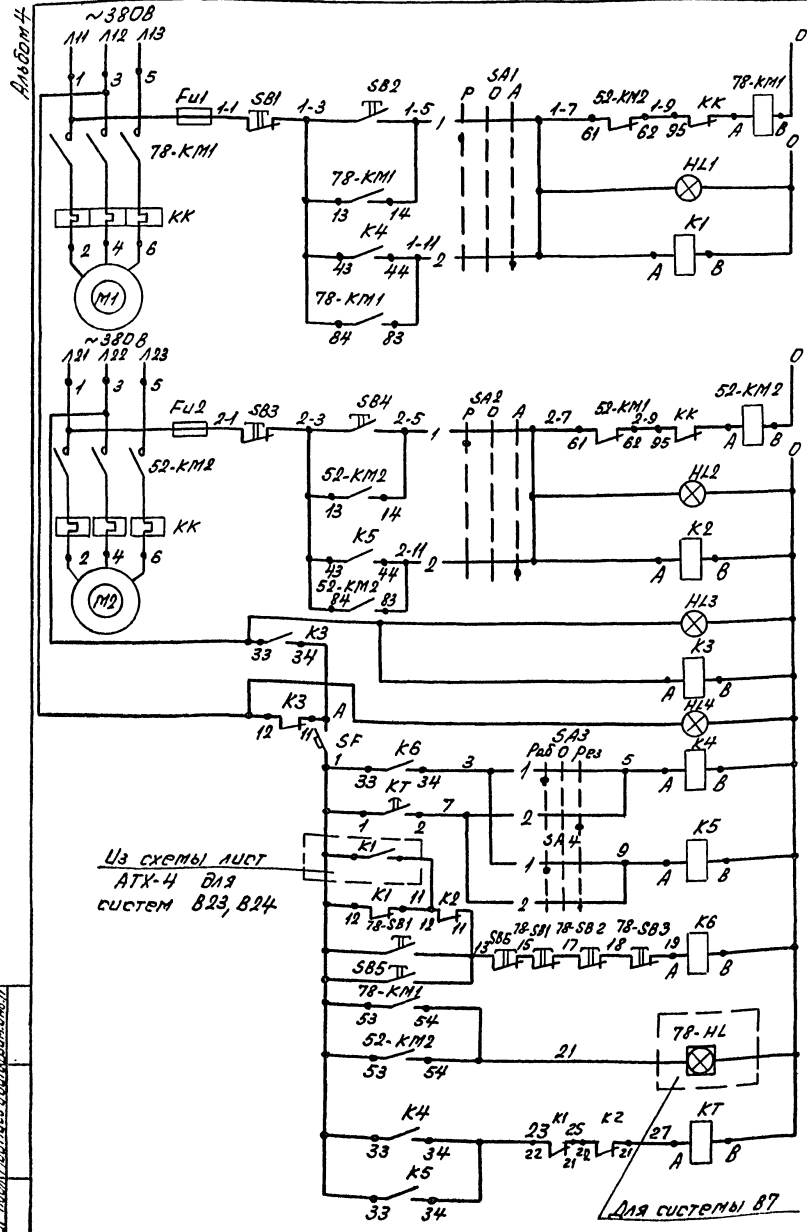 Альбом 4
~380В
Л11 Л12 Л13
1 3 5
Fu1 1-1 SB1 1-3 SB2 1-5 1 SA1 Р О А 1-7 52-КМ2 1-9 КК 78-КМ1 О
61 62 95 А В
78-КМ1
О
HL1
78-КМ1
13 14
КК
К4 1-11
43 44 2
К1
А В
2 4 6
М1
78-КМ1
84 83
~380В
Л21 Л22 Л23
1 3 5
О
Fu2 2-1 SB3 2-3 SB4 2-5 1 SA2 Р О А 2-7 52-КМ1 2-9 КК 52-КМ2
61 62 95 А В
О
52-КМ2
52-КМ2
13 14
HL2
КК
К5 2-11
43 44 2
К2
А В
2 4 6
М2
52-КМ2
84 83
HL3
К3
33 34
К3
А В
К3 А
12 11
HL4
SF
1
К6 3
33 34
SA3
Раб О Рез
1 5
К4
А В
КТ 7
1 2
2
SA4
К1
1 9
К5
А В
2
Из схемы лист
АТХ-4 для
систем В23, В24
К1 11 К2
12 12 11
78-SB1
13 SB5 15 78-SB1 17 78-SB2 18 78-SB3 19 К6
А В
SB5
78-КМ1
53 54
52-КМ2
53 54
21
78-HL
К4
33 34
23 К1 25 К2 27 КТ
22 21 22 21 А В
К5
33 34
Для системы В7